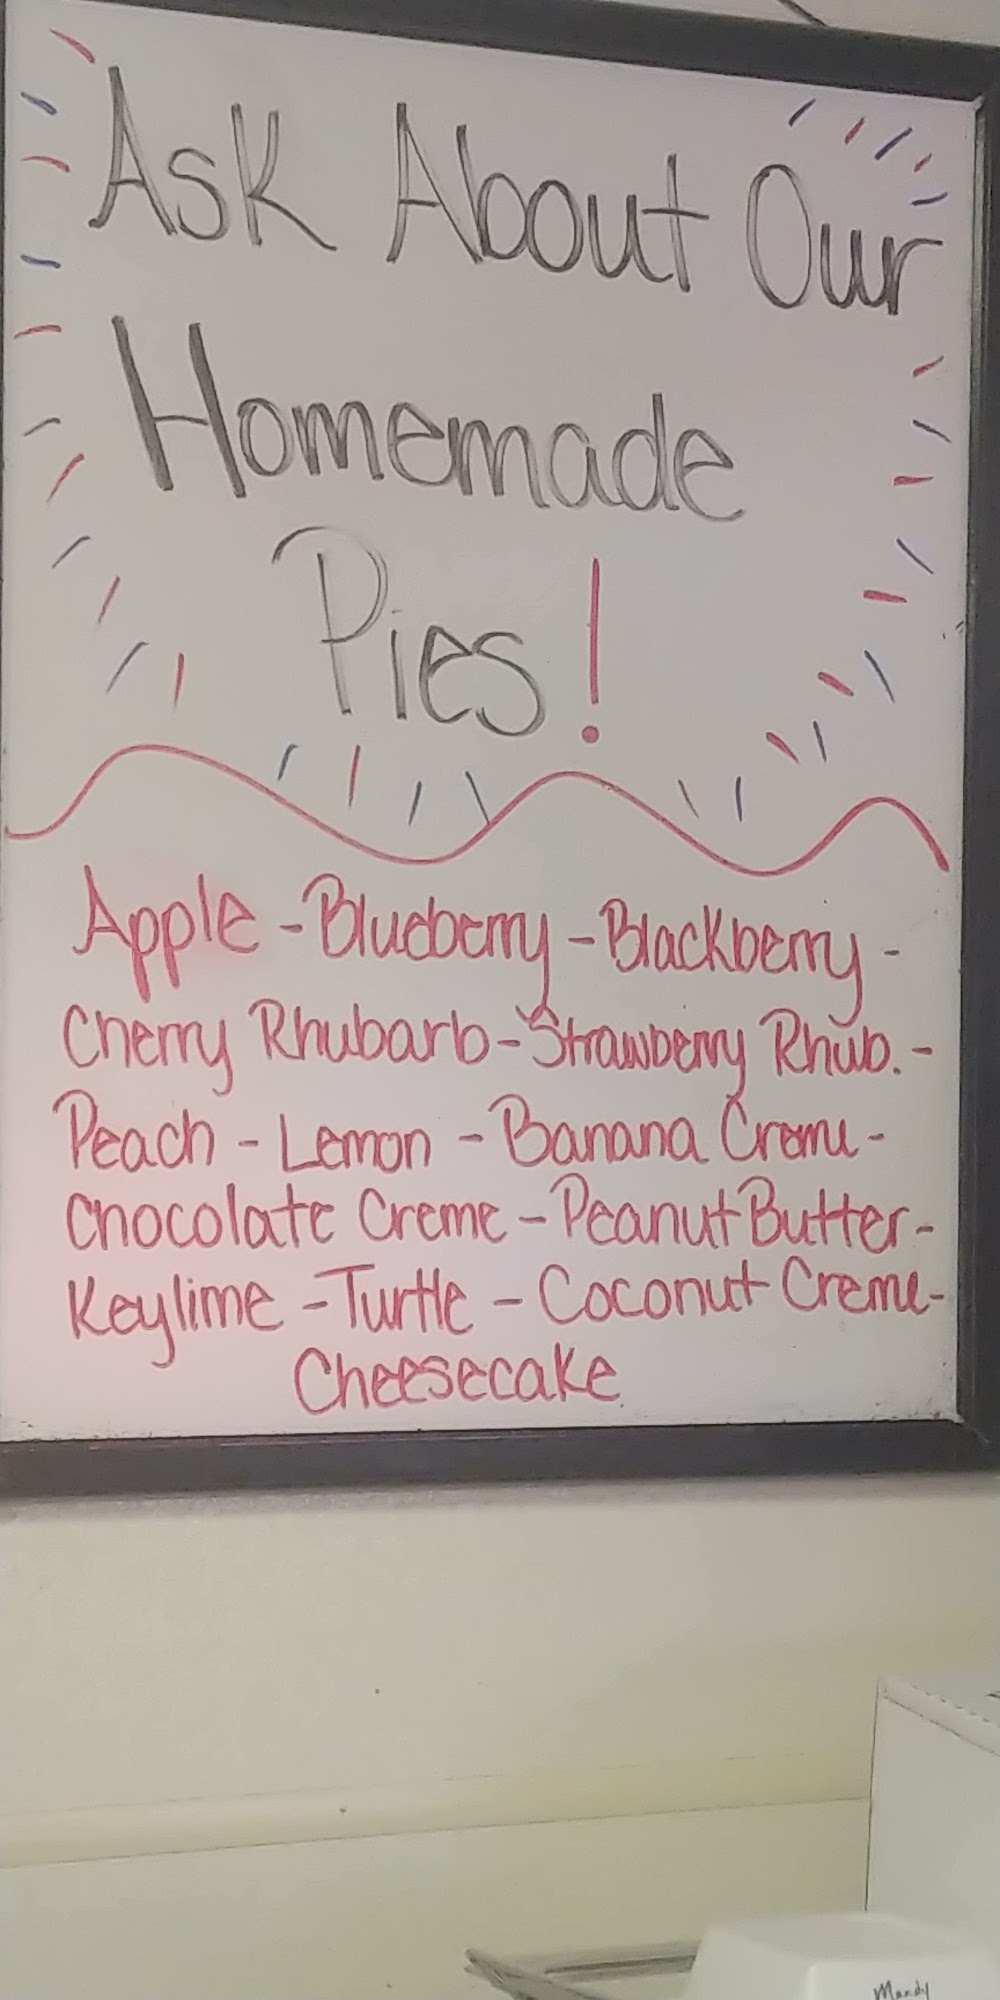 Ask About Our
Homemade
Pies!
Apple - Blueberry - Blackberry -
Cherry Rhubarb - Strawberry Rhub. -
Peach - Lemon - Banana Creme -
Chocolate Creme - Peanut Butter -
Keylime - Turtle - Coconut Creme -
Cheesecake
Mandy